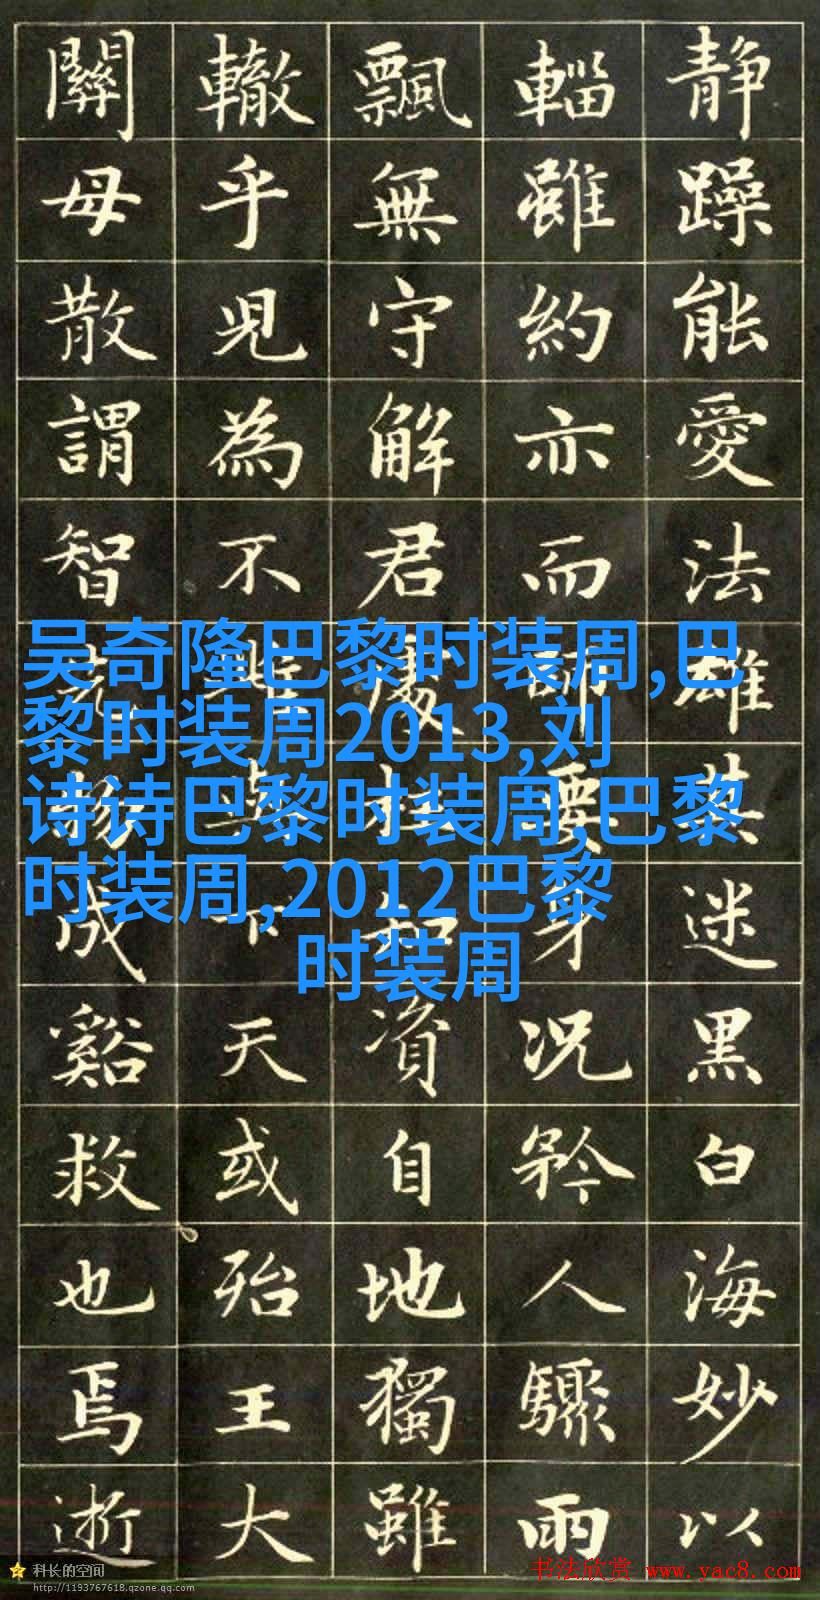 静躁能愛法雄迷黑白海妙以
輜雖約亦而師要身况矜人驟雨
飄無守解君處知資自地獨雖
轍乎児為不離下天或殆王大
關毋散謂智物成谿救也焉逝
吴奇隆巴黎时装周,巴
黎时装周2013,刘
诗诗巴黎时装周,巴黎
时装周,2012巴黎
时装周
科长的空间
http://1193767618.qzone.qq.com
书法欣赏 www.yac8.com